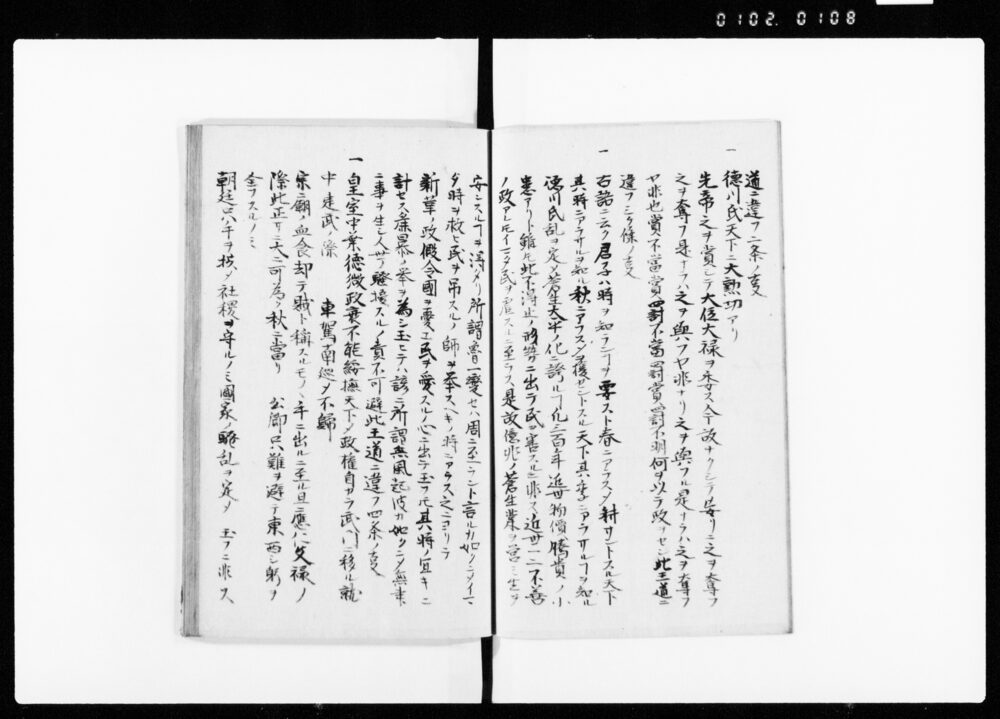 0102. 0108
道ニ違フ二条ノ支
一
徳川氏天下ニ大勲功アリ
先帝之ヲ賞シテ大位大禄ヲ 今故ナクシテ妄リニ之ヲ奪フ
之ヲ奪フ是ナラハ之ヲ與フヤ非ナリ之ヲ與フル是ナラハ之ヲ奪フ
ヤ非也賞不當賞罰不當罰賞罰不明何ヲ以テ政ヲセン此王道ニ
違フ三ケ條ノ支
一
古語ニ云ク君子ハ時ヲ知ランヿヲ要スト春ニアラスメ耕サントスル天下
其時ニアラサルヲ知ル秋ニアラスメ穫セントスル天下其季ニアラサルヿヲ知ル
徳川氏乱ヲ定メ蒼生大平ノ化ニ誇ルヿ化三百年近世物價騰貴ノ小
患アリト雖モ此不得止ノ形勢ニ出テ民ヲ害スルニ非ス近世一二不善
ノ政アレモイマタ民ヲ虐スルニ至ラス是故億兆ノ蒼生業ヲ営ミ生ヲ
安シスルヿヲ得ハタリ所謂魯一變セハ周ニ至ラント言ルカ如クニメイマ
タ時ヲ救ヒ民ヲ吊スルノ師ヲ奉スヘキノ時ニアラス之ニヨリテ
新革ノ政假令國ヲ憂エ民ヲ愛スルノ心ニ出テ玉フモ其時ノ宜キニ
計セス暴ノ挙ヲ為シ玉ヒテハ諺ニ所謂無風起波カ如クニメ無事
ニ事ヲ生シ人世ヲ騒擾スルノ責不可避此王道ニ違フ四条ノ支
一
皇室中葉徳微政衰不能綏撫天下ノ政権自カラ武門ニ移ル就
中建武ノ際 車駕南巡メ不歸
宗廟血食却テ賊ト称スルモノヽ手ニ出ルニ至ル且ニ應仁文禄ノ
際此正ニ大ニ可為ノ秋ニ當リ 公卿只難ヲ避テ東西シ躬ヲ
全フスルノミ
朝廷只ハ手ヲ拱メ社稷ヲ守ルノミ國家ノ騒乱ヲ定メ 玉フニ非ス